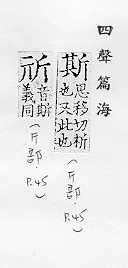 四聲篇海
斯思移切析
也又此也
(斤部 P.45)
音斯
義同
(斤部 P.45)